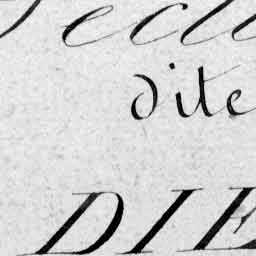 ecu
dite
DIE